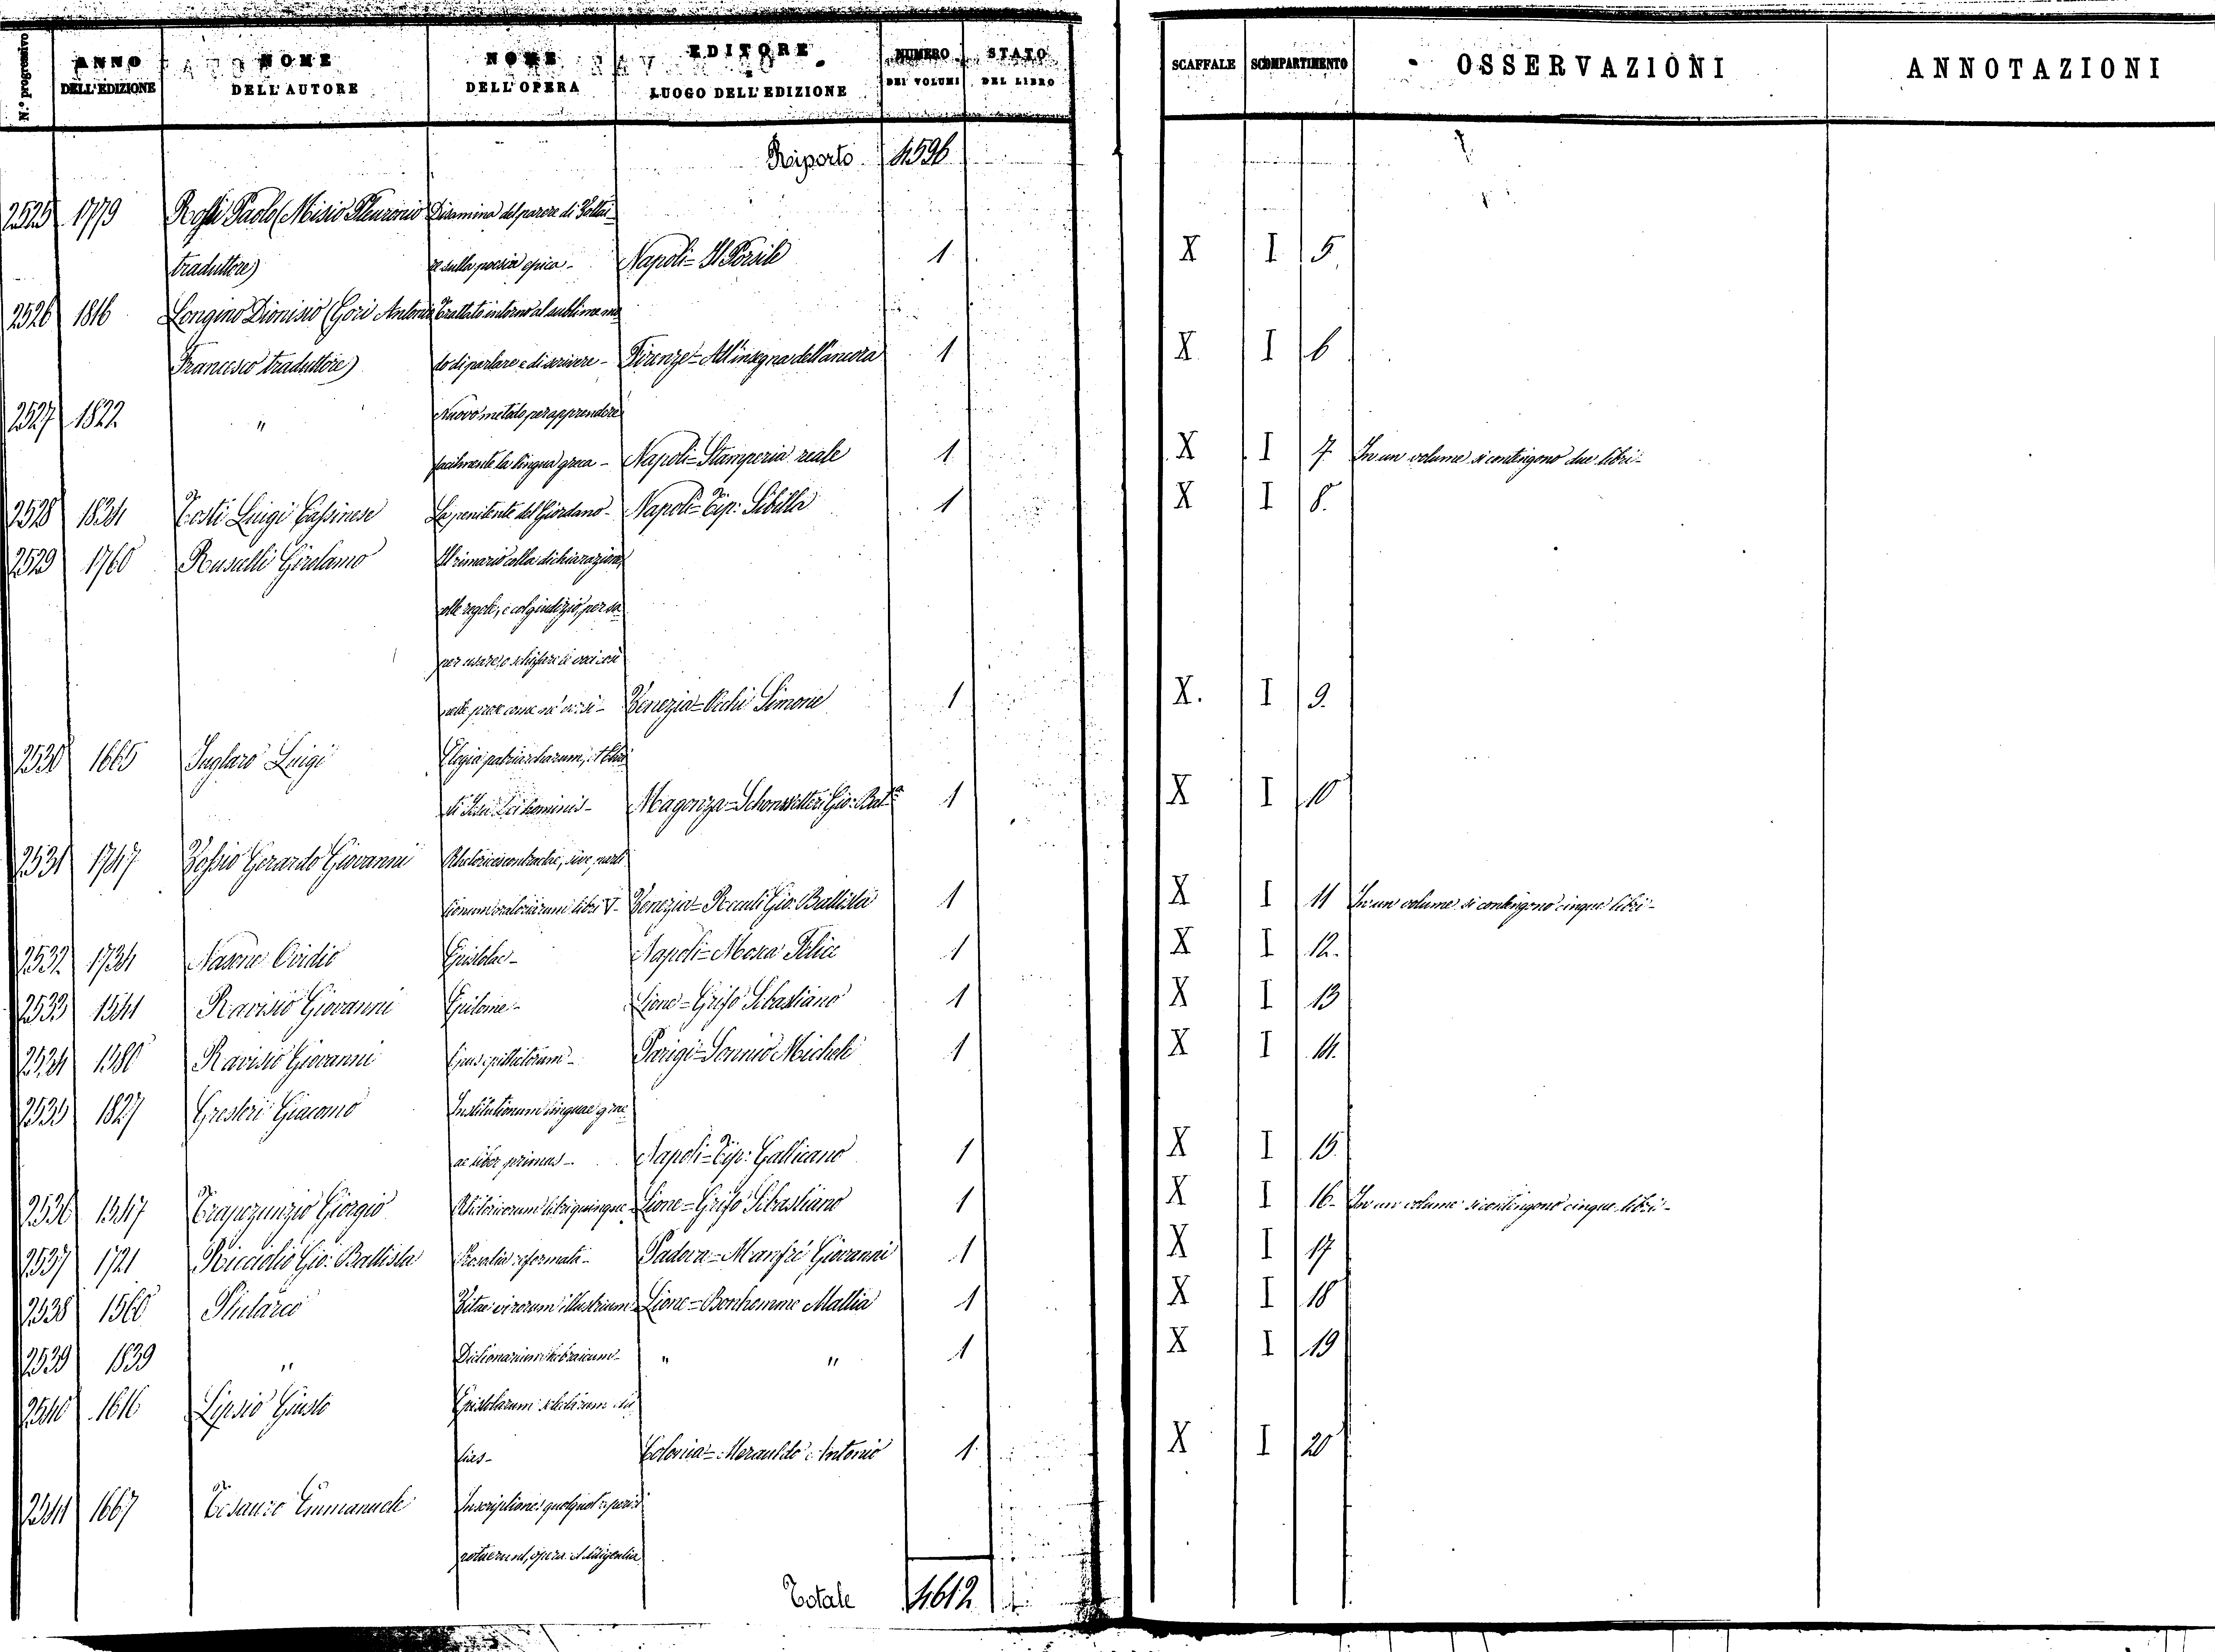 N.º progressivo
ANNO DELL'EDIZIONE
NOME DELL'AUTORE
NOME DELL'OPERA
EDITORE LUOGO DELL'EDIZIONE
NUMERO DEI VOLUMI
STATO DEL LIBRO
SCAFFALE
SCOMPARTIMENTO
OSSERVAZIONI
ANNOTAZIONI
Riporto 4596
2525 1779 Rolli Paolo (Misio Pleuronio Disamina del parere di Voltai-
traduttore) re sulla poesia epica - Napoli = Il Porsile 1 X I 5
2526 1816 Longino Dionisio (Gori Antonio Trattato intorno al sublime mo
Francesco traduttore) do di parlare e di scrivere - Firenze = All'insegna dell'ancora 1 X I 6
2527 1822 " Nuovo metodo per apprendere
facilmente la lingua greca - Napoli = Stamperia reale 1 X I 7 In un volume si contengono due libri -
2528 1834 Tosti Luigi Cassinese La penitente del Giordano - Napoli = Tip: Sibilla 1 X I 8.
2529 1760 Ruscelli Girolamo Il rimario colla dichiarazione,
colle regole, e col giudizio per sa
per usare, o schifare le voci così
nelle prose come ne' versi - Venezia = Occhi Simone 1 X. I 9.
2530 1665 Juglaro Luigi Elogia patriarcharum, et Chri
sti Jesu Dei hominis - Magonza = Gio: Batta 1 X I 10
2531 1747 Vossio Gerardo Giovanni Rhetorices contractae, sive parti
tionum oratoriarum libri V - Venezia = Gio: Battista 1 X I 11 In un volume si contengono cinque libri -
2532 1734 Nasone Ovidio Epistolae - Napoli = Mosca Felice 1 X I 12.
2533 1541 Ravisio Giovanni Epitome - Lione = Grifo Sebastiano 1 X I 13
2534 1580 Ravisio Giovanni epithetorum - Parigi = Sonnio Michele 1 X I 14.
2535 1827 Gretseri Giacomo Institutionum linguae grae
ae liber primus - Napoli = Tip: Gallicano 1 X I 15.
2536 1547 Trapezunzio Giorgio Rhetoricorum libri quinque - Lione = Grifo Sebastiano 1 X I 16 - In un volume si contengono cinque libri -
2537 1721 Ricciolio Gio: Battista Prosodia reformata - Padova = Manfrè Giovanni 1 X I 17
2538 1560 Plutarco Vitae virorum illustrium - Lione = Bonhomme Mattia 1 X I 18
2539 1839 " Dictionarium hebraicum - " " 1 X I 19
2540 1616 Lipsio Giusto Epistolarum selectarum
- Colonia = Antonio 1 X I 20
2541 1667 Tesauro Emmanuele Inscriptiones quotquot reperiri
potuerunt, opera et diligentia
Totale 4612